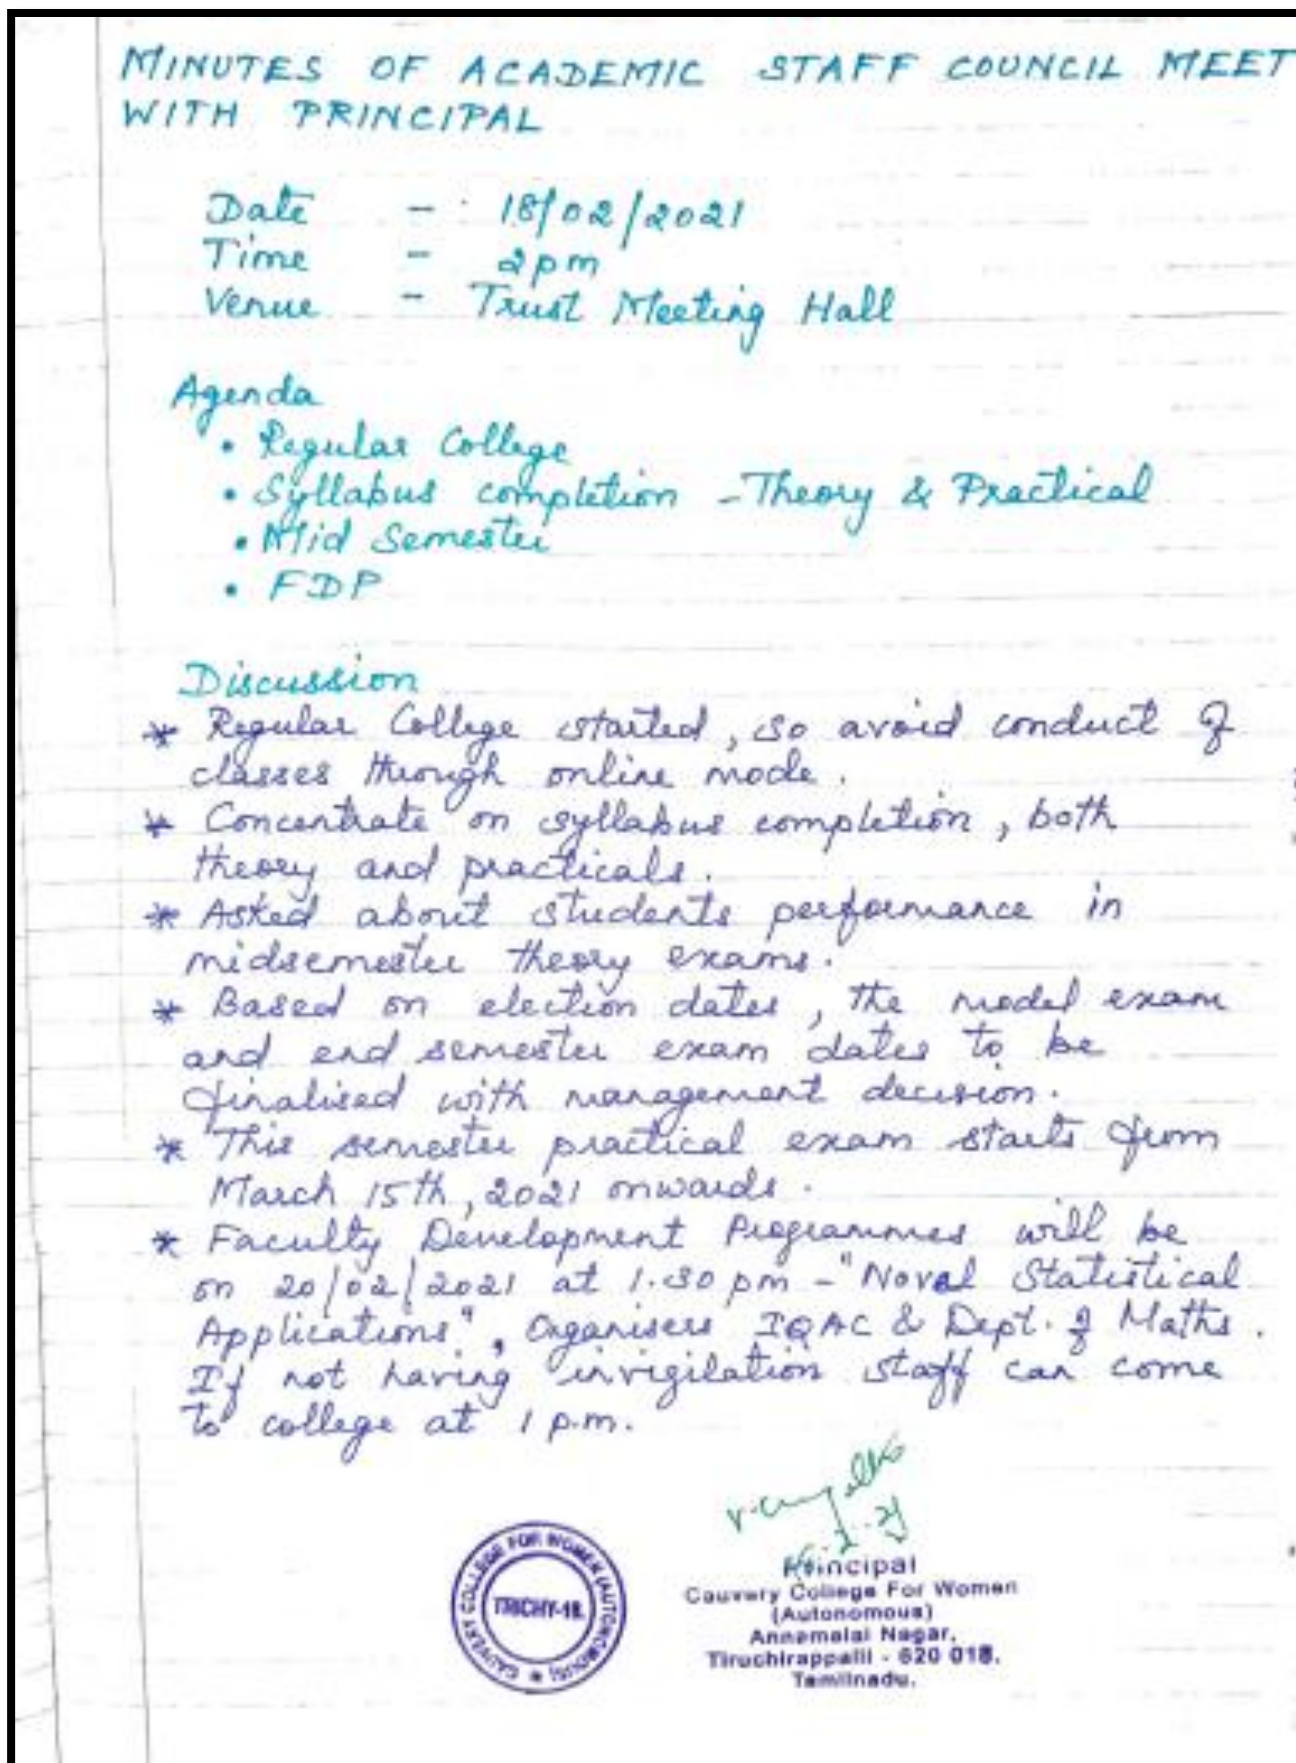 MINUTES OF ACADEMIC STAFF COUNCIL MEET
WITH PRINCIPAL
Date - : 18/02/2021
Time - 2pm
Venue - Trust Meeting Hall
Agenda
• Regular College
• Syllabus completion - Theory & Practical
• Mid Semester
• FDP
Discussion
* Regular College started, so avoid conduct of
classes through online mode.
* Concentrate on syllabus completion, both
theory and practicals.
* Asked about students performance in
midsemester theory exams.
* Based on election dates, the model exam
and end semester exam dates to be
finalised with management decision.
* This semester practical exam starts from
March 15th, 2021 onwards.
* Faculty Development Programmes will be
on 20/02/2021 at 1.30 pm - "Noval Statistical
Applications", Organisers IQAC & Dept. of Maths.
If not having invigilation staff can come
to college at 1 p.m.
CAUVERY COLLEGE FOR WOMEN (AUTONOMOUS)
TRICHY-18.
Principal
Cauvery College For Women
(Autonomous)
Annamalai Nagar,
Tiruchirappalli - 620 018.
Tamilnadu.